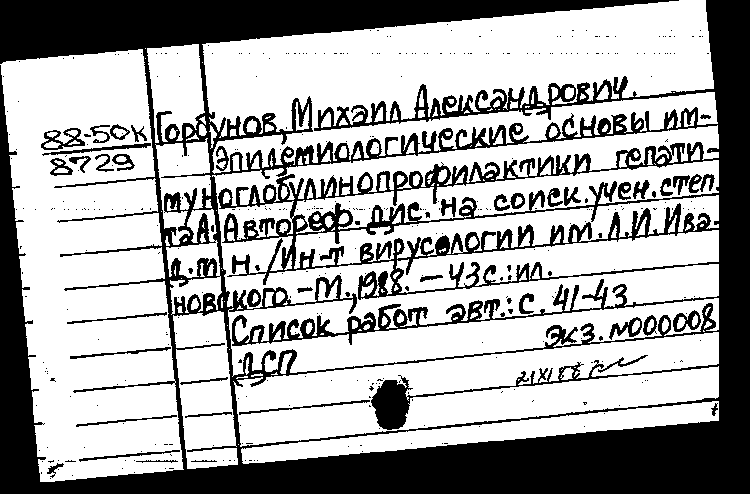 88-50к Горбунов, Михаил Александрович.
8729 Эпидемиологические основы им-
муноглобулинопрофилактики гепати-
та А: Автореф. дис. на соиск. учен. степ.
д.м.н. / Ин-т вирусологии им. Д.И. Ива-
новского. - М., 1988. - 43 с.: ил.
Список работ авт.: с. 41-43.
Экз. N000008
ДСП